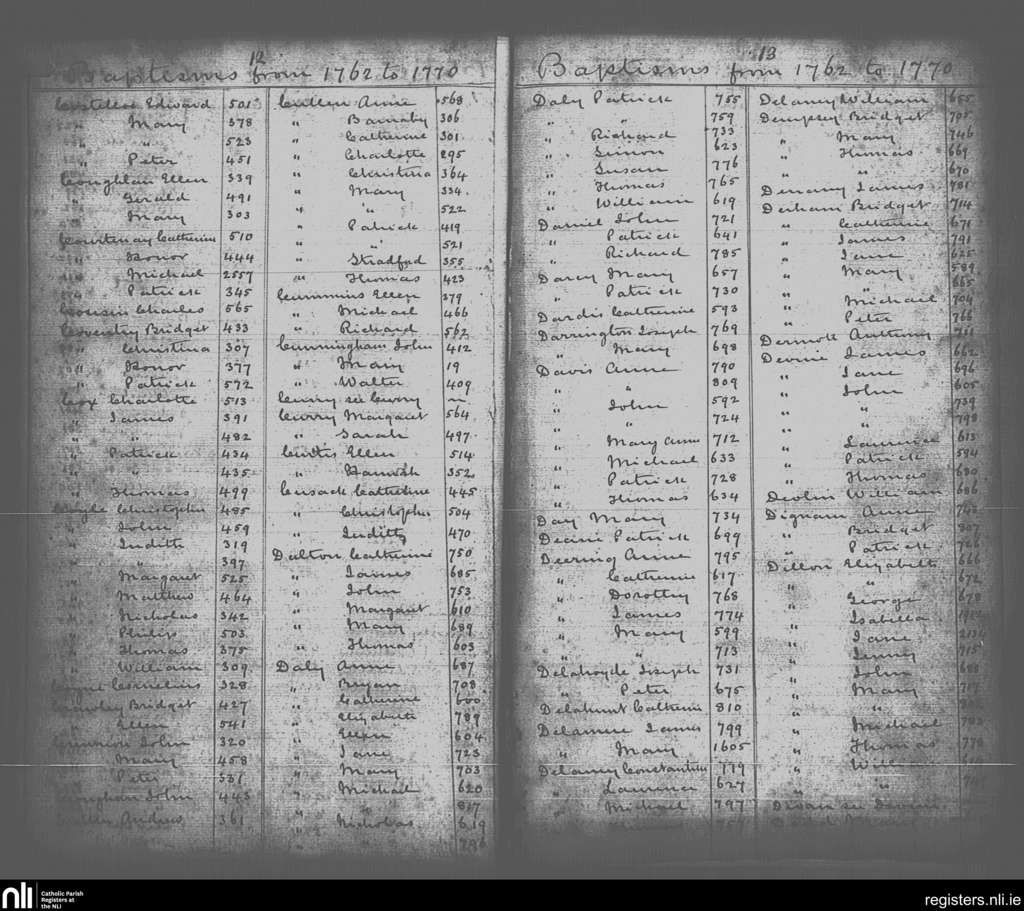 12
Baptisms from 1762 to 1770
Costelloe Edward 501
" Mary 378
" " 523
" Peter 451
Coughlan Ellen 339
" Gerald 491
" Mary 303
Courtenay Catherine 510
" Honor 444
" Michael 2557
" Patrick 345
Cousin Charles 565
Coventry Bridget 433
" Christina 307
" Honor 377
" Patrick 572
Cox Charlotte 513
" James 391
" " 482
" Patrick 434
" " 435
" Thomas 499
Coyle Christopher 485
" John 459
" Judith 319
" " 397
" Margaret 525
" Matthew 464
" Nicholas 342
" Philip 503
" Thomas 375
" William 309
Cornelius 328
Crawley Bridget 427
" Ellen 541
John 320
" Mary 458
" Peter 537
John 443
361
Cullen Anne 568
" Barnaby 306
" Catherine 301
" Charlotte 295
" Christina 364
" Mary 334
" " 522
" Patrick 419
" " 521
" Stradford 355
" Thomas 423
Cummins Ellen 379
" Michael 466
" Richard 562
Cunningham John 412
" Mary 19
" Walter 409
Curry see Corry —
Curry Margaret 564
" Sarah 497
Curtis Ellen 514
" Hannah 352
Cusack Catherine 445
" Christopher 504
" Judith 470
Dalton Catherine 750
" James 685
" John 753
" Margaret 610
" Mary 689
" Thomas 603
Daly Anne 687
" Bryan 708
" Catherine 600
" Elizabeth 789
" Ellen 604
" Jane 723
" Mary 703
" Michael 620
" " 817
" Nicholas 619
" "
13
Baptisms from 1762 to 1770
Daly Patrick 755
" " 759
" Richard 733
" Simon 623
" Susan 776
" Thomas 765
" William 619
Daniel John 721
" Patrick 641
" Richard 785
Darcy Mary 657
" Patrick 730
Dardis Catherine 593
Darrington Joseph 769
" Mary 698
Davis Anne 790
" " 809
" John 592
" " 724
" Mary Anne 712
" Michael 633
" Patrick 728
" Thomas 634
Day Mary 734
Decini Patrick 699
Deering Anne 795
" Catherine 617
" Dorothy 768
" James 774
" Mary 599
" " 713
Delahoyde Joseph 731
" Peter 675
Delahunt Catherine 810
Delamere James 799
" Mary 1605
Delaney Constantine 779
" Laurence 627
" Michael 797
Delaney William 655
Dempsey Bridget 705
" Mary 746
" Thomas 669
" " 670
Denany James 781
Derham Bridget 714
" Catherine 671
" James 791
" Jane 625
" Mary 589
" " 665
" Michael 704
" Peter 766
Dermott Anthony 711
Devine James 662
" Jane 696
" John 605
" " 739
" " 798
" Laurence 613
" Patrick 594
" Thomas 630
Devlin William 686
Dignam Anne
" Bridget 807
" Patrick 726
Dillon Elizabeth 666
" " 672
" George 678
" Isabella
" Jane
" Jenny 715
" John 688
" Mary
" "
" Michael
" Thomas 778
" William
" "
nli
Catholic Parish
Registers at
the NLI
registers.nli.ie